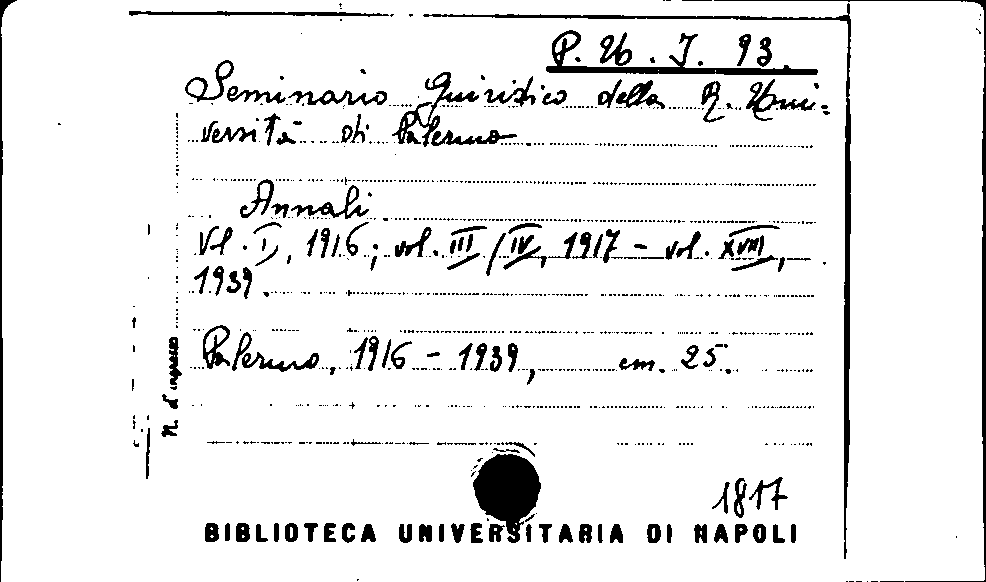 P. U. I. 93.
Seminario Giuridico della R. Uni=
versità di Palermo.
Annali.
Vol. I, 1916; vol. III/IV, 1917 - vol. XVIII,
1939.
Palermo, 1916 - 1939, cm. 25.
N. d'ingresso
1817
BIBLIOTECA UNIVERSITARIA DI NAPOLI